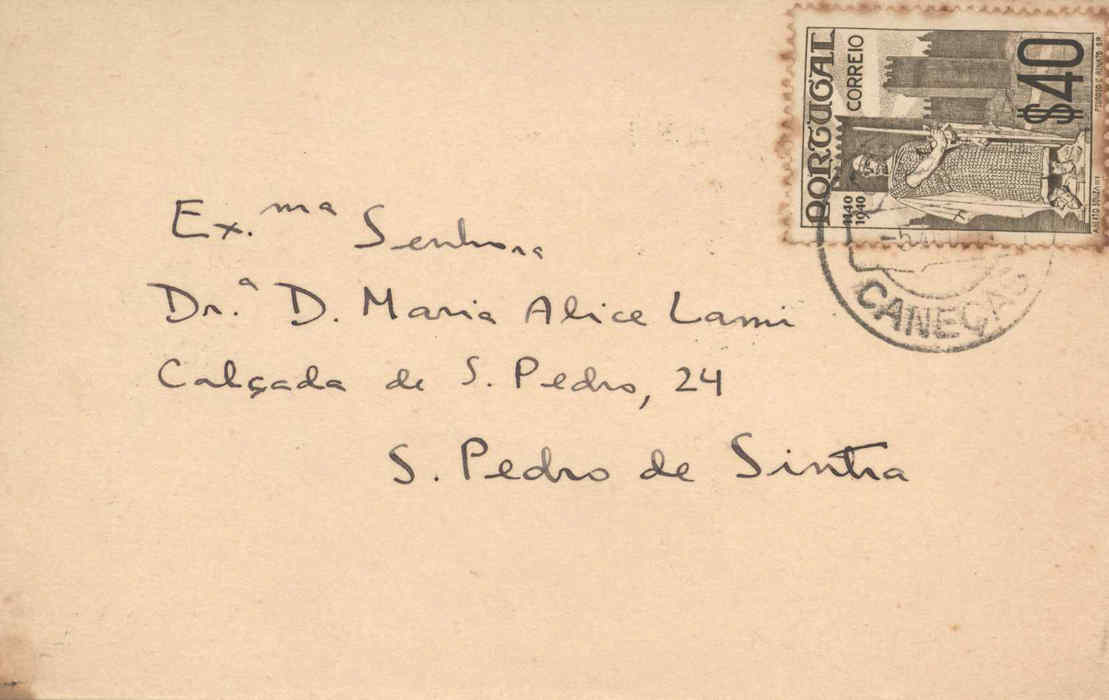 PORTUGAL
CORREIO
$40
1140
1940
CANEÇAS
Ex.ma Senhora
Dr.ª D. Maria Alice Lami
Calçada de S. Pedro, 24
S. Pedro de Sintra